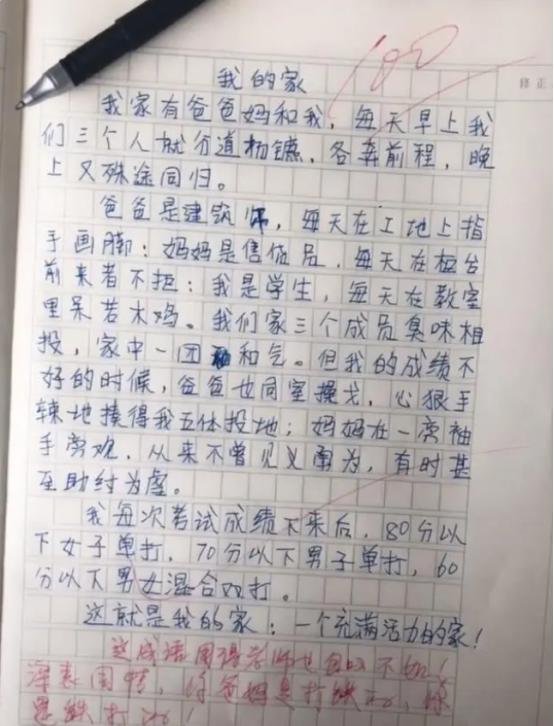 100
修正
我的家
我家有爸爸妈和我，每天早上我
们三个人就分道杨镳，各奔前程，晚
上又殊途同归。
爸爸是建筑师，每天在工地上指
手画脚；妈妈是售货员，每天在柜台
前来者不拒；我是学生，每天在教室
里呆若木鸡。我们家三个成员臭味相
投，家中一团和气。但我的成绩不
好的时候，爸爸也同室操戈，心狠手
辣地揍得我五体投地；妈妈在一旁袖
手旁观，从来不曾见义勇为，有时甚
至助纣为虐。
我每次考试成绩下来后，80分以
下女子单打，70分以下男子单打，60
分以下男女混合双打。
这就是我的家：一个充满活力的家！
这成语用得老师也自叹不如！
深表同情，你爸妈是打铁的，你
是铁打的！